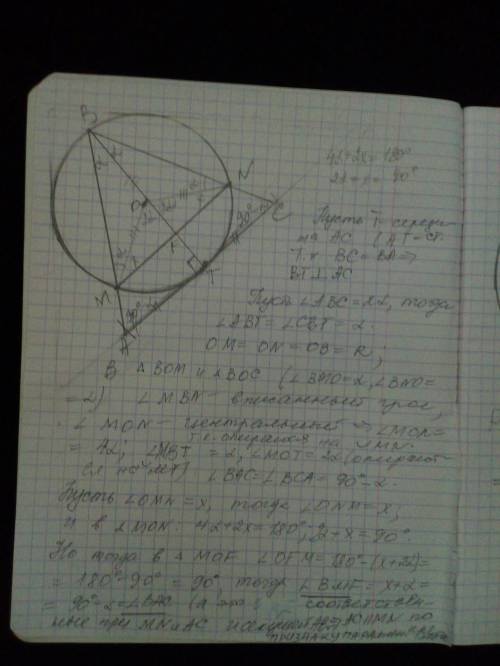 B
N
O
C
M
F
T
A
90°-α
90°-α
4α+2x=180°
2α+x=90°
Пусть T - середи-
на AC (AT=CT)
Т.к. BC=BA ⇒
BT⊥AC
Пусть ∠ABC=2α, тогда
∠ABT=∠CBT=α.
OM=ON=OB=R;
В △BOM и △BOC (∠BMO=α, ∠BNO=
=α) ∠MBN - вписанный угол,
∠MON - центральный ⇒ ∠MON=
т.к. опираются на ◡MN
=4α, ∠MBT=α, ∠MOT=2α (опирают-
ся на ◡MT) ∠BAC=∠BCA=90°-α.
Пусть ∠OMN=x, тогда ∠ONM=x,
и в △MON: 4α+2x=180°, 2α+x=90°.
Но тогда в △MOF ∠OFM=180°-(x+2α)=
=180°-90°=90°, тогда ∠BMF=x+α=
=90°-α=∠BAC (а эти соответствен-
ные при MN и AC и секущей AB) ⇒ AC∥MN по
признаку параллельности